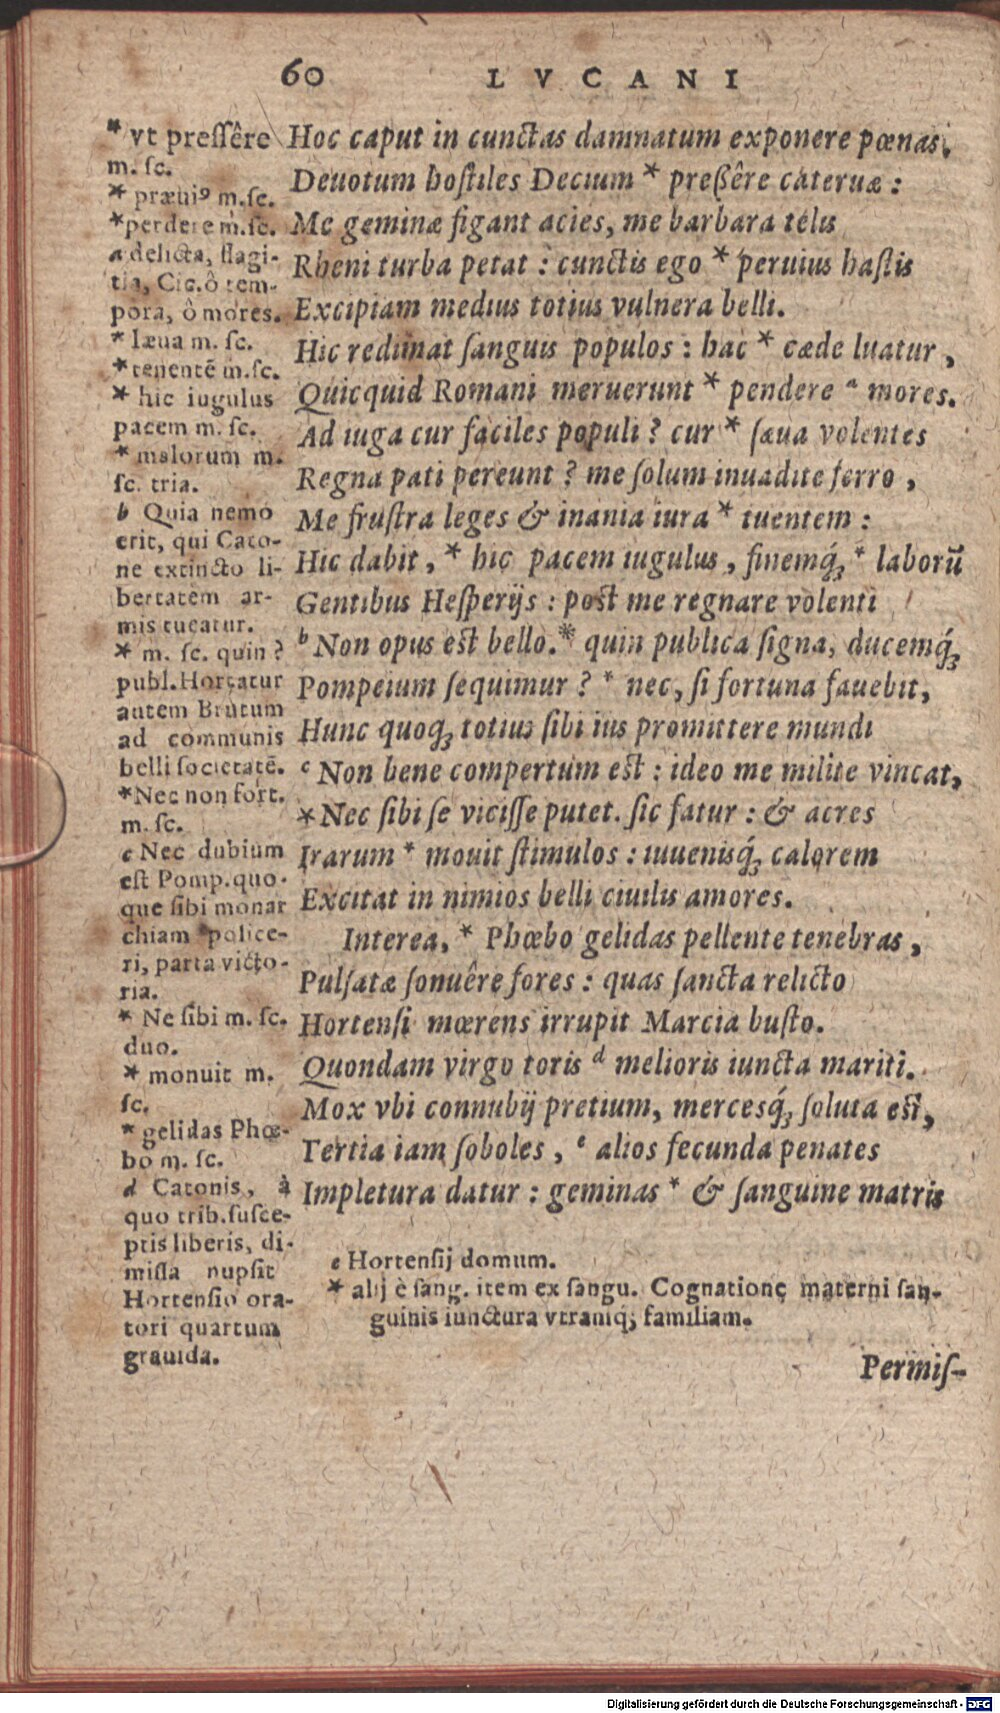 60 LVCANI
* vt pressêre
m. sc.
* præuiꝰ m. sc.
*perdere m. sc.
a delicta, flagi-
tia, Cic. ô tem-
pora, ô mores.
* læua m. sc.
* tenentē m. sc.
* hic iugulus
pacem m. sc.
* malorum m.
sc. tria.
b Quia nemo
erit, qui Cato-
ne extincto li-
bertatem ar-
mis tueatur.
* m. sc. quin?
publ. Hortatur
autem Brutum
ad communis
belli societatē.
*Nec non fort.
m. sc.
c Nec dubium
est Pomp. quo-
que sibi monar
chiam police-
ri, parta victo-
ria.
* Ne sibi m. sc.
duo.
* monuit m.
sc.
* gelidas Phœ-
bo m. sc.
d Catonis, à
quo trib. susce-
ptis liberis, di-
missa nupsit
Hortensio ora-
tori quartum
grauida.
Hoc caput in cunctas damnatum exponere pœnas.
Deuotum hostiles Decium * pressêre cateruæ :
Me geminæ figant acies, me barbara telis
Rheni turba petat : cunctis ego * peruius hastis
Excipiam medius totius vulnera belli.
Hic redimat sanguis populos : hac * cæde luatur,
Quicquid Romani meruerunt * pendere a mores.
Ad iuga cur faciles populi ? cur * sæua volentes
Regna pati pereunt ? me solum inuadite ferro,
Me frustra leges & inania iura * tuentem :
Hic dabit, * hic pacem iugulus, finemq́ꝫ * laborū
Gentibus Hesperijs : post me regnare volenti
b Non opus est bello. * quin publica signa, ducemq́ꝫ
Pompeium sequimur ? * nec, si fortuna fauebit,
Hunc quoqꝫ totius sibi ius promittere mundi
c Non bene compertum est : ideo me milite vincat,
* Nec sibi se vicisse putet. sic fatur : & acres
Irarum * mouit stimulos : iuuenisq́ꝫ calorem
Excitat in nimios belli ciuilis amores.
Interea, * Phœbo gelidas pellente tenebras,
Pulsatæ sonuêre fores : quas sancta relicto
Hortensi mœrens irrupit Marcia busto.
Quondam virgo toris d melioris iuncta mariti.
Mox vbi connubij pretium, mercesq́ꝫ soluta est,
Tertia iam soboles, e alios fecunda penates
Impletura datur : geminas * & sanguine matris
e Hortensij domum.
* alij è sang. item ex sangu. Cognatione materni san-
guinis iunctura vtramqꝫ familiam.
Permis-
Digitalisierung gefördert durch die Deutsche Forschungsgemeinschaft - DFG